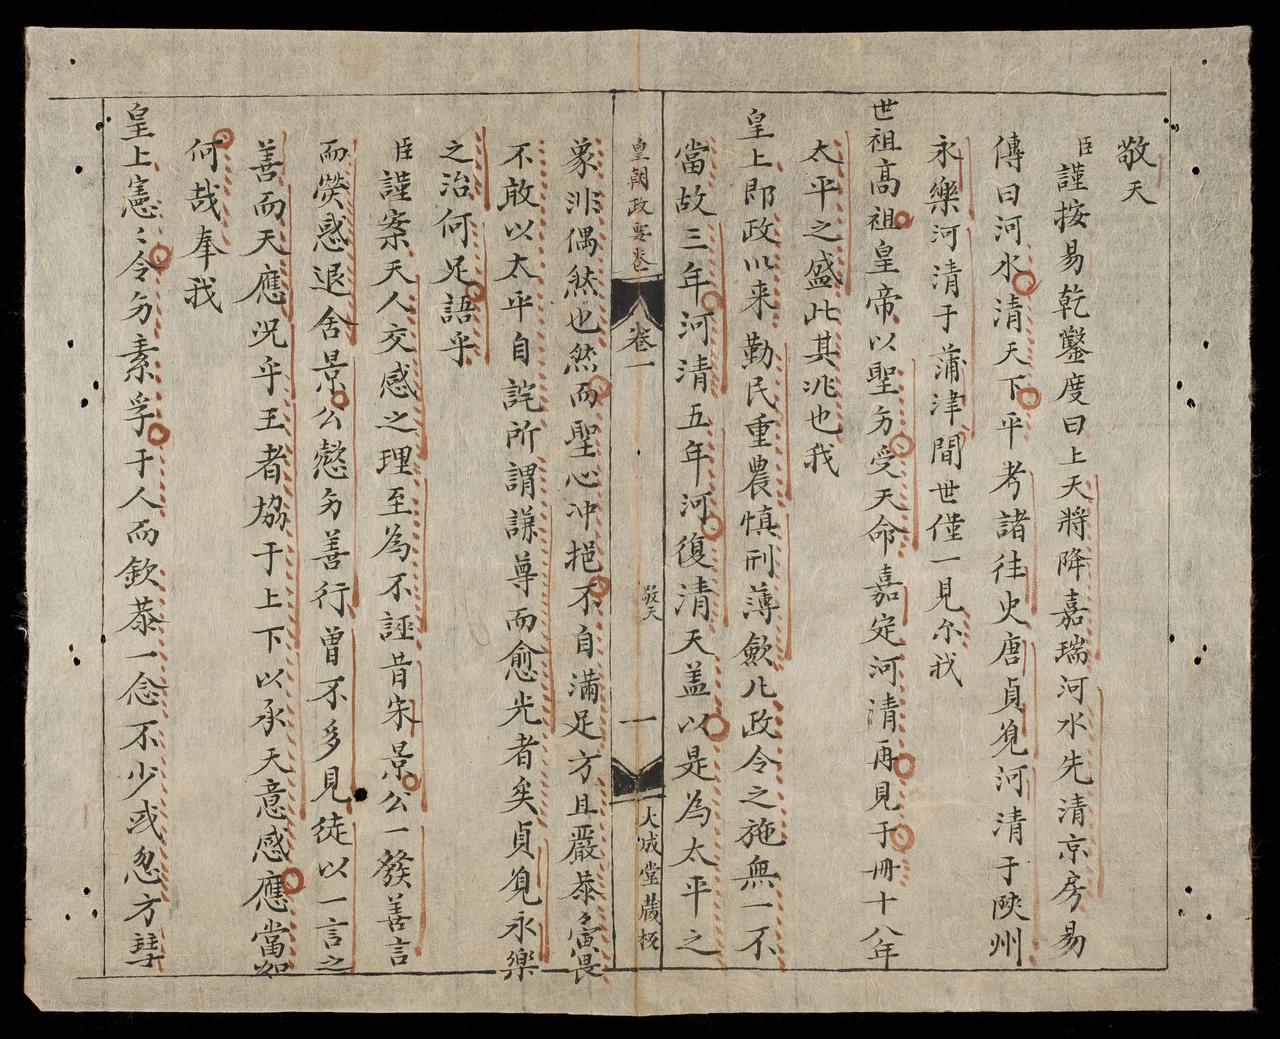 敬天
臣謹按易乾鑿度曰上天將降嘉瑞河水先清京房易
傳曰河水清天下平考諸往史唐貞觅河清于陝州
永樂河清于蒲津間世僅一見尔我
世祖高祖皇帝以聖夯受天命嘉定河清再見于冊十八年
太平之盛此其兆也我
皇上即政以来勤民重農慎刑薄歛凡政令之施無一不
當故三年河清五年河復清天盖以是為太平之
皇朝政要卷
卷一
敬天
一
大成堂藏板
象非偶然也然而聖心冲挹不自滿足方且嚴恭寅畏
不敢以太平自詫所謂謙尊而愈光者矣貞觅永樂
之治何足語乎
臣謹案天人交感之理至為不誣昔宋景公一發善言
而熒惑退舍景公懿夯善行曾不多見徒以一言之
善而天應况乎王者協于上下以承天意感應當如
何哉奉我
皇上憲〻令夯素孚于人而欽恭一念不少或忽方彗